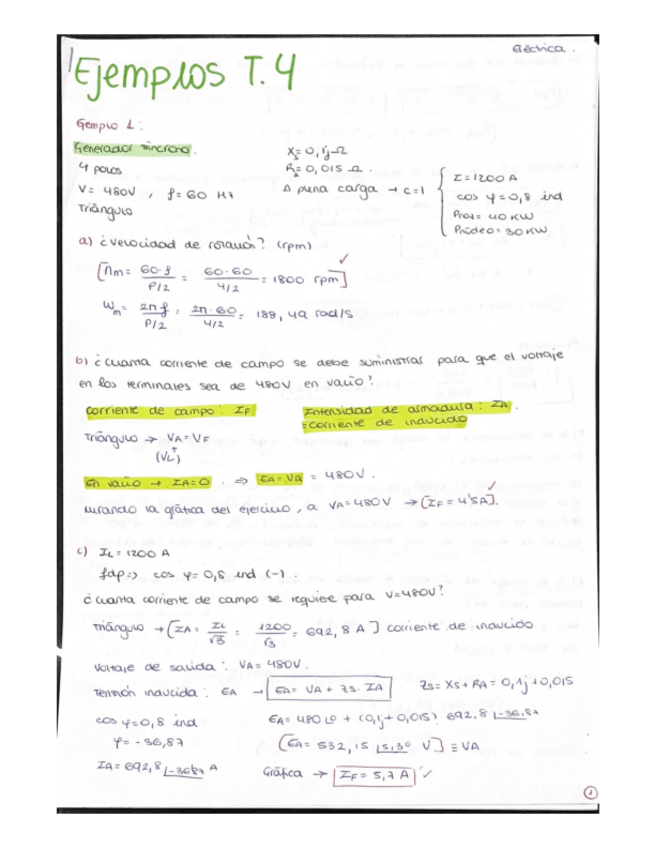 Eléctrica.
Ejemplos T.4
Ejemplo 1:
Generador síncrono.
4 polos
V = 480V, f = 60 Hz
Triángulo
Xs = 0,1j Ω
Rs = 0,015 Ω.
A plena carga → c=1
I = 1200 A
cos φ = 0,8 ind
Prot = 40 KW
Pnúcleo = 30 KW
a) ¿Velocidad de rotación? (rpm)
[nm = 60·f / P/2 = 60·60 / 4/2 = 1800 rpm] ✓
Wm = 2π f / P/2 = 2π·60 / 4/2 = 188,49 rad/s
b) ¿cuanta corriente de campo se debe suministrar para que el voltaje
en los terminales sea de 480V en vacío?
corriente de campo: IF
Intensidad de armadura: IA.
= corriente de inducido
Triángulo → VA = VF
(VL)
En vacío → IA=0. ⇒ EA = VA = 480V.
mirando la gráfica del ejercicio, a VA=480V → [IF = 4'5A]. ✓
c) IL = 1200 A
fdp => cos φ = 0,8 ind (-).
¿cuanta corriente de campo se requiere para V=480V?
Triángulo → [IA = IL/√3 = 1200/√3 = 692,8 A] corriente de inducido
Voltaje de salida: VA = 480V.
Tensión inducida: EA → EA = VA + Zs · IA
Zs = Xs + RA = 0,1j + 0,015
cos φ = 0,8 ind
EA = 480∠0 + (0,1j + 0,015) · 692,8∠-36,87
φ = -36,87
[EA = 532,15∠5,3° V] ≡ VA
IA = 692,8∠-36,87 A
Gráfica → IF = 5,7 A ✓
1